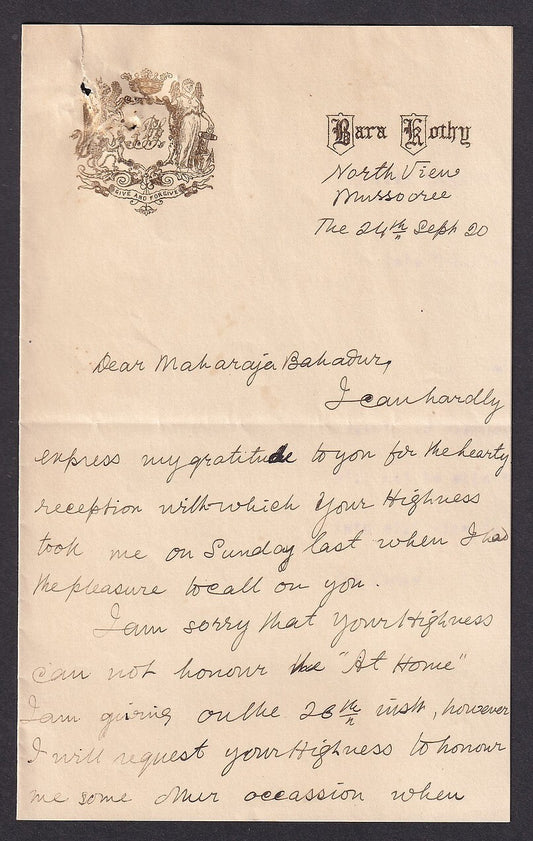 GIVE AND FORGIVE
Bara Kothy
North View
Mussooree
The 24th Sept 20
Dear Maharaja Bahadur,
I can hardly
express my gratitude to you for the hearty
reception with which Your Highness
took me on Sunday last when I had
the pleasure to call on you.
I am sorry that Your Highness
can not honour the "At Home"
I am giving on the 26th inst, however
I will request your Highness to honour
me some other occassion when